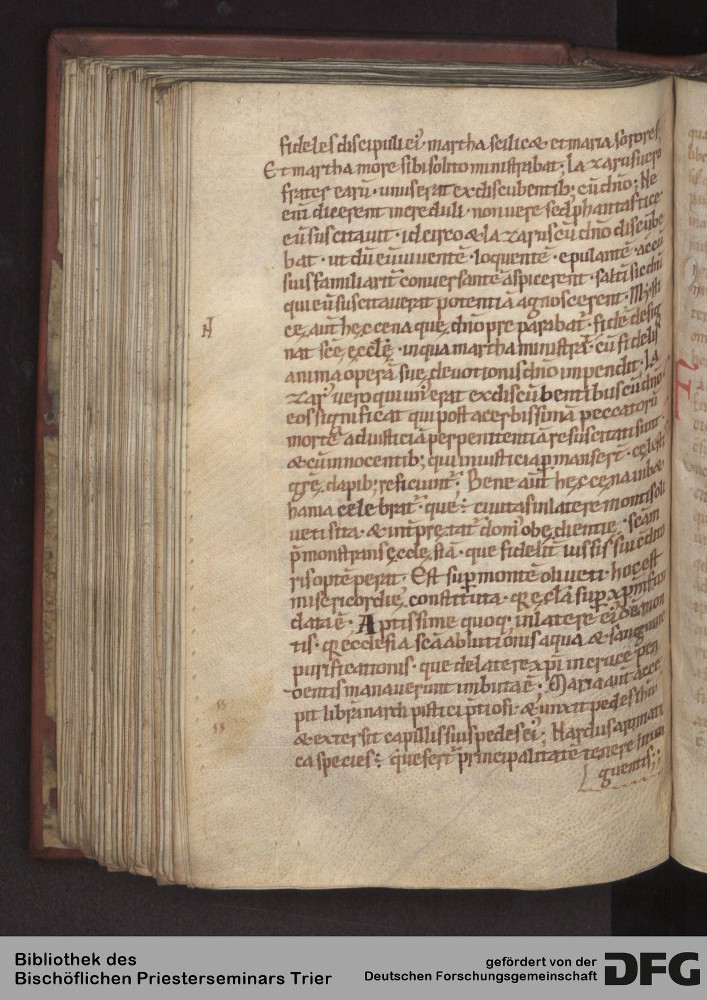 fideles discipuli ei᾽ martha scilic& et maria sorores
Et martha more sibi solito ministrabat · Lazarus uero
frater earū · unus erat ex discūbentib; cū dn̄o · Ne
enī dicerent increduli · non uere sed phantastice
eū suscitauit · idcirco & lazarus cū dn̄o discūbe
bat · ut dū eū uiuentē · loquentē · epulantē · ac cū
suis familiarit̄ conuersantē aspicerent · saltī sic chī
qui eū suscitauerat potentiā agnoscerent · Mysti
ce aut̄ hęc cena quę dn̄o preparabat᷑ · fidē desig
nat scę̄ ęcclę̄ · in qua martha ministrat᷑ · cū fidelis
anima operā suę deuotionis dn̄o impendit · La
zar᾽ uero qui un᾽ erat ex discūbentibus cū dn̄o
eos significat qui post acerbissimā peccatorū
mortē ad iusticiā per penitentiā resuscitati sunt ·
& cū innocentib; qui in iusticia ꝑmanser̄t · cęlesti
grę̄ dapib; reficiunt᷑ · Bene aut̄ hęc cęna in b&
hania celebrat᷑ · quę · ciuitas in latere montis oli
ueti sita · & int̄pretat᷑ dom᾽ obędientię · scām
p̄monstrans ęcclesiā · que fidelit̄ iussis sui cdito
ris optēperat · Est suꝑ montē oliueti · hoc est
misericordię constituta · q̄ ęclā suꝑ xp̄m fun
data ē · Aptissime quoq; in latere ei᾽ dē mon
tis · q̄ ecclesia scā ablutionis aqua & sanguine
purificationis · que de latere xp̄i in cruce pen
dentis manauerunt imbuta ē · Maria aut̄ acce
pit librā nardi pistici p̄tiosi · & unxit pedes ihū
& extersit capillis suis pedes ei᾽ · Nardus aromati
ca species · que fert᷑ principalitatē tenere in un
guentis ;
Bibliothek des
Bischöflichen Priesterseminars Trier
gefördert von der
Deutschen Forschungsgemeinschaft
DFG